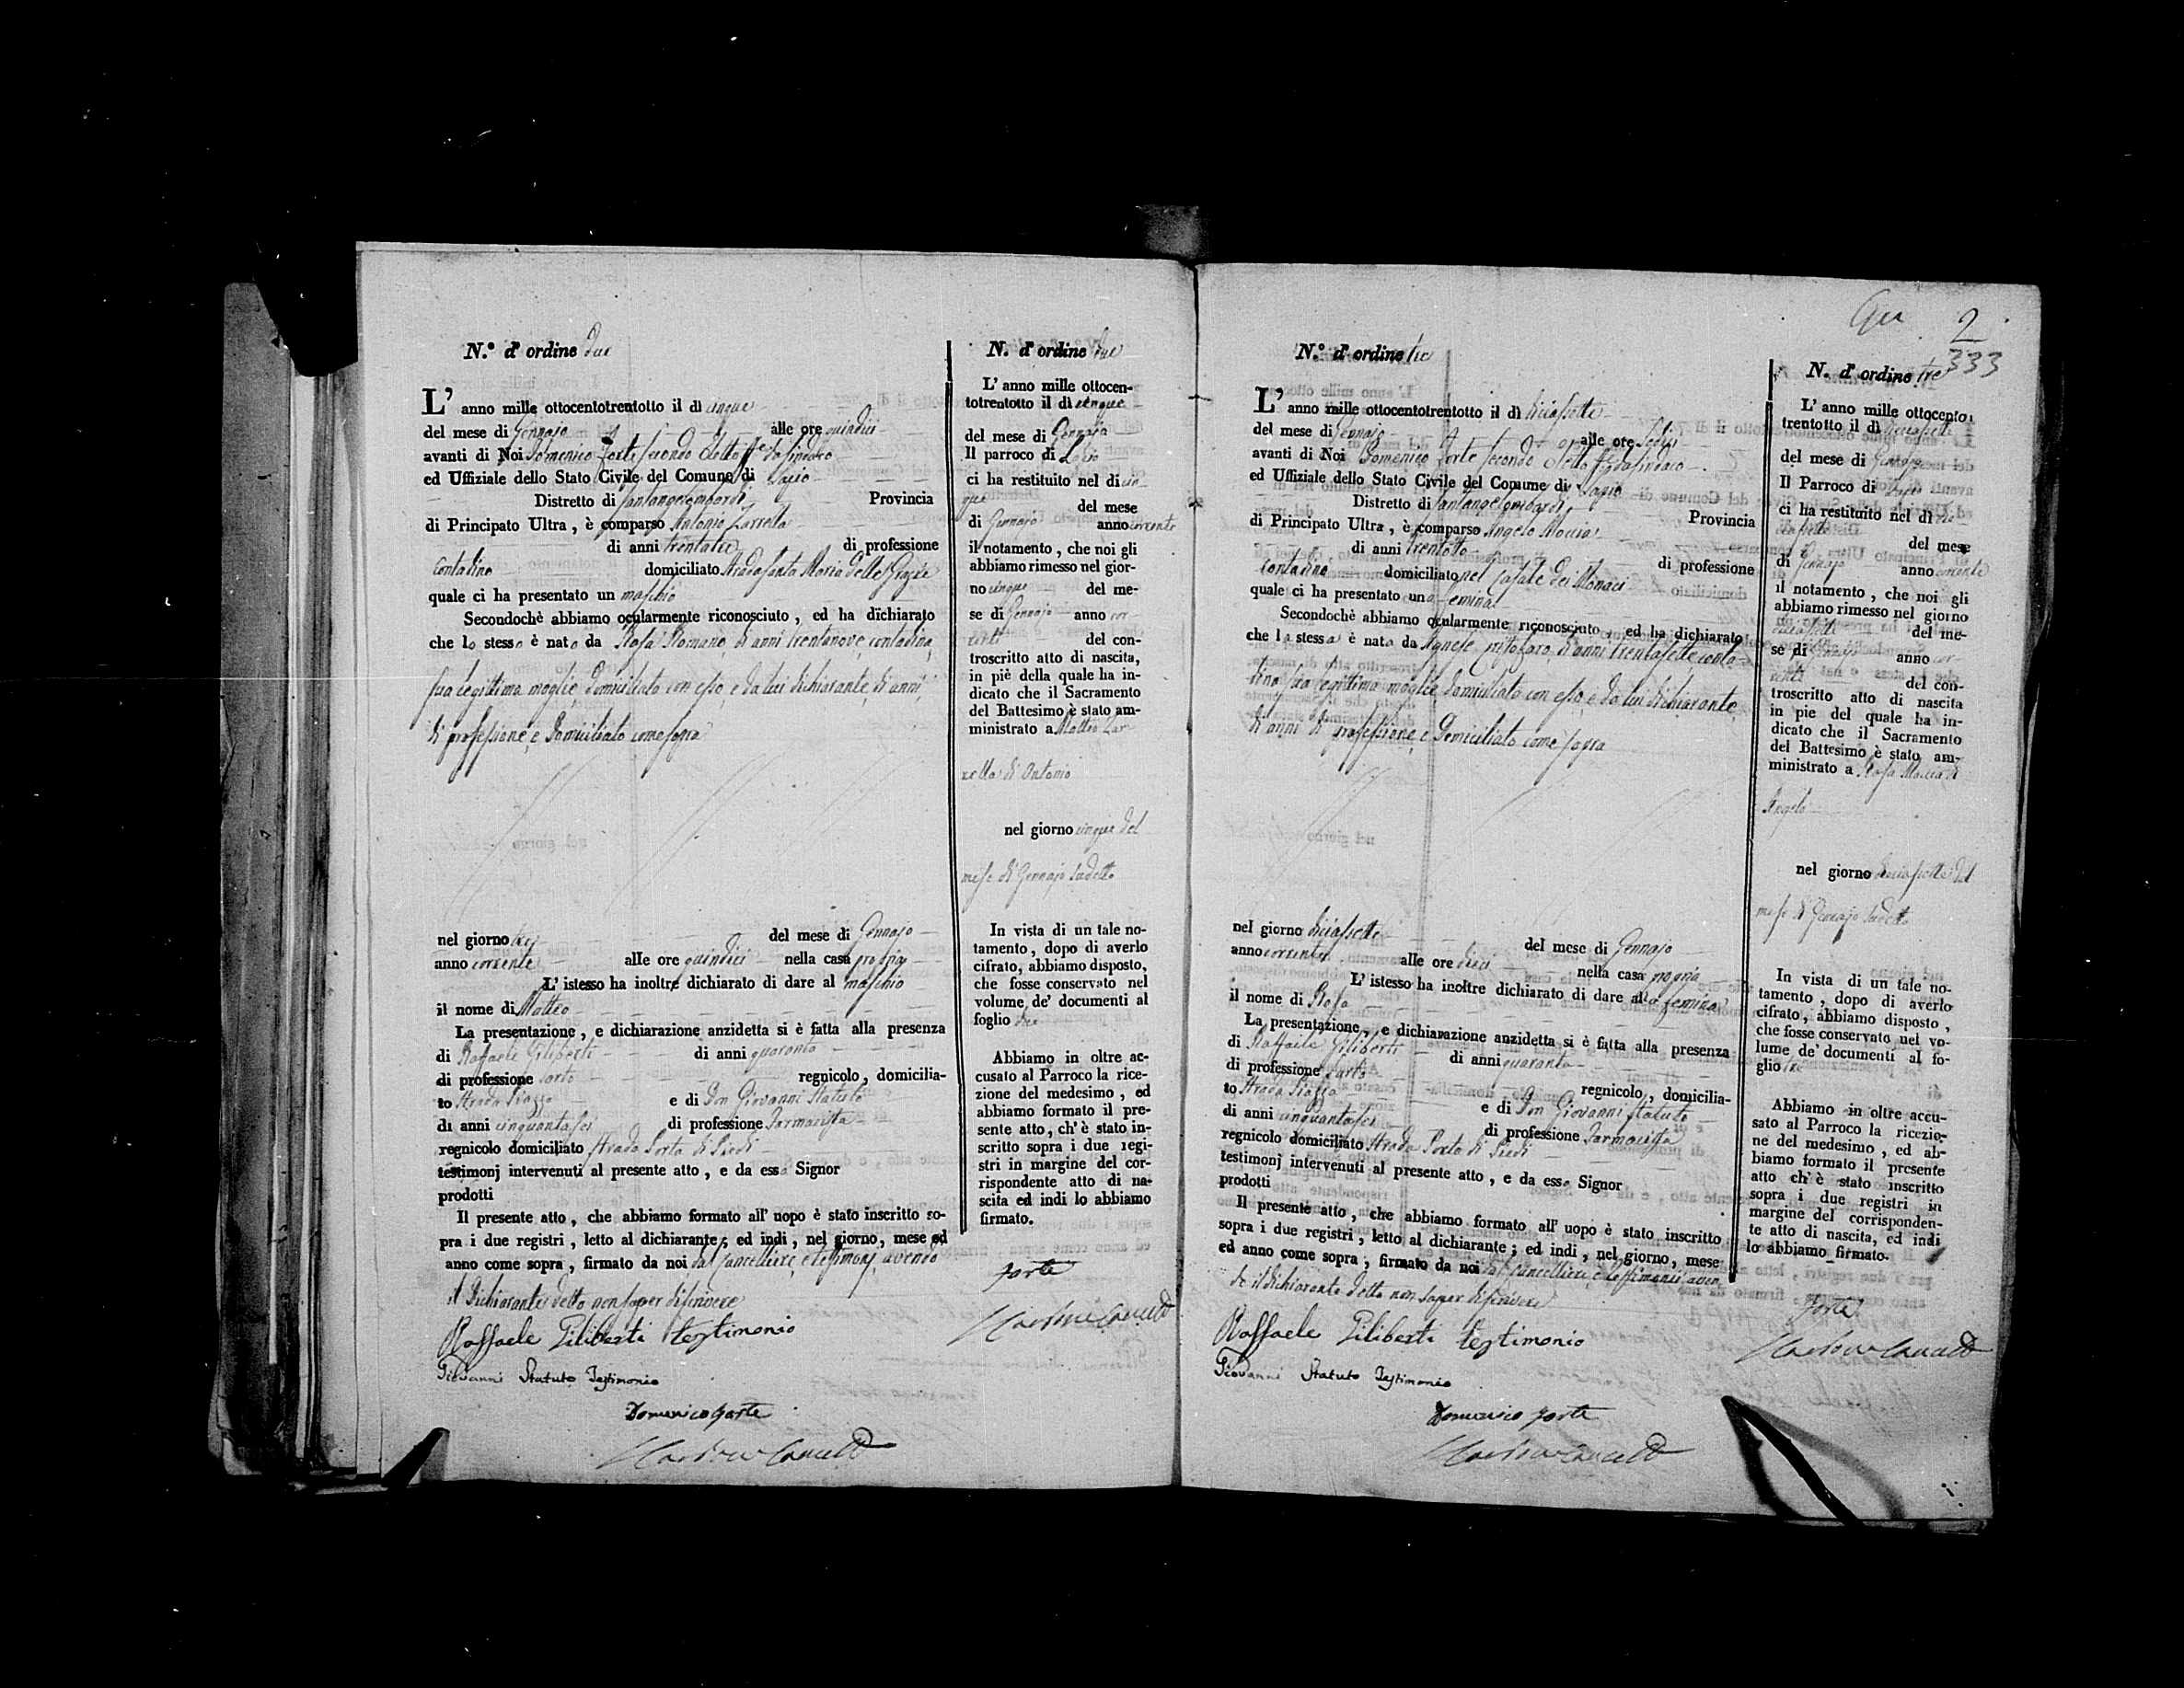 N.° d' ordine due
L' anno mille ottocentotrentotto il dì cinque
del mese di Gennajo alle ore quindici
avanti di Noi Domenico Forte secondo Eletto ff da sindaco
ed Uffiziale dello Stato Civile del Comune di Lapio
Distretto di Santangelombardi Provincia
di Principato Ultra , è comparso Antonio Zarrella
di anni trentatre di professione
contadino domiciliato Strada Santa Maria delle Grazie
quale ci ha presentato un maschio
Secondochè abbiamo ocularmente riconosciuto , ed ha dichiarato
che lo stesso è nato da Rosa Romano, di anni trentanove, contadina,
sua legittima moglie, domiciliata con esso, e da lui dichiarante, di anni,
di professione, e domiciliato come sopra
nel giorno tre del mese di Gennajo
anno corrente alle ore quindici nella casa propria
L' istesso ha inoltre dichiarato di dare al maschio
il nome di Matteo
La presentazione , e dichiarazione anzidetta si è fatta alla presenza
di Raffaele Giliberti di anni quaranta
di professione sarto regnicolo , domicilia-
to Strada Piazza e di Don Giovanni Statuto
di anni cinquantasei di professione Farmacista
regnicolo domiciliato Strada Porta di Piedi
testimonj intervenuti al presente atto , e da esso Signor
prodotti
Il presente atto , che abbiamo formato all' uopo è stato inscritto so-
pra i due registri , letto al dichiarante ; ed indi , nel giorno, mese ed
anno come sopra , firmato da noi dal Cancelliere, e testimonj, avendo
il Dichiarante detto non saper di scrivere
Raffaele Giliberti testimonio
Giovanni Statuto Testimonio
Domenico Forte
N. d' ordine due
L' anno mille ottocen-
totrentotto il dì cinque
del mese di Gennajo
Il parroco di Lapio
ci ha restituito nel di cin-
que del mese
di Gennajo anno corrente
il notamento , che noi gli
abbiamo rimesso nel gior-
no cinque del me-
se di Gennajo anno cor
rente del con-
troscritto atto di nascita,
in piè della quale ha in-
dicato che il Sacramento
del Battesimo è stato am-
ministrato a Matteo Zar
rella di Antonio
nel giorno cinque del
mese di Gennajo sudetto
In vista di un tale no-
tamento , dopo di averlo
cifrato, abbiamo disposto,
che fosse conservato nel
volume de' documenti al
foglio due
Abbiamo in oltre ac-
cusato al Parroco la rice-
zione del medesimo , ed
abbiamo formato il pre-
sente atto , ch' è stato in-
scritto sopra i due regi-
stri in margine del cor-
rispondente atto di na-
scita ed indi lo abbiamo
firmato.
Forte
2
333
N.° d' ordine tre
L' anno mille ottocentotrentotto il dì diciassette
del mese di Gennajo alle ore sedici
avanti di Noi Domenico Forte secondo Eletto ff da sindaco
ed Uffiziale dello Stato Civile del Comune di Lapio
Distretto di Santangelombardi Provincia
di Principato Ultra , è comparso Angelo Moccia
di anni trentotto di professione
contadino domiciliato nel Casale dei Monaci
quale ci ha presentato una femina
Secondochè abbiamo ocularmente riconosciuto , ed ha dichiarato
che la stessa è nata da Agnese di anni trentasette conta-
dina sua legittima moglie domiciliata con esso, e da lui dichiarante
di anni di professione, e domiciliato come sopra
nel giorno diciassette del mese di Gennajo
anno corrente alle ore dieci nella casa propria
L' istesso ha inoltre dichiarato di dare alla femina
il nome di Rosa
La presentazione , e dichiarazione anzidetta si è fatta alla presenza
di Raffaele Giliberti di anni quaranta
di professione sarto regnicolo , domicilia-
to Strada Piazza e di Don Giovanni Statuto
di anni cinquantasei di professione Farmacista
regnicolo domiciliato Strada Porta di Piedi
testimonj intervenuti al presente atto , e da esso Signor
prodotti
Il presente atto , che abbiamo formato all' uopo è stato inscritto
sopra i due registri , letto al dichiarante ; ed indi , nel giorno, mese
ed anno come sopra , firmato da noi dal Cancelliere, e testimonii, aven
do il dichiarante detto non saper di scrivere
Raffaele Giliberti testimonio
Giovanni Statuto Testimonio
Domenico Forte
N. d' ordine tre
L' anno mille ottocento
trentotto il dì diciassette
del mese di Gennajo
Il Parroco di Lapio
ci ha restituito nel dì dic-
iassette del mese
di Gennajo anno corrente
il notamento , che noi gli
abbiamo rimesso nel giorno
diciassette del me-
se di Gennajo anno cor-
rente del con-
troscritto atto di nascita
in pie del quale ha in-
dicato che il Sacramento
del Battesimo è stato am-
ministrato a Rosa Moccia di
Angelo
nel giorno diciassette del
mese di Gennajo sudetto
In vista di un tale no-
tamento , dopo di averlo
cifrato , abbiamo disposto ,
che fosse conservato nel vo-
lume de' documenti al fo-
glio tre
Abbiamo in oltre accu-
sato al Parroco la ricezio-
ne del medesimo , ed ab-
biamo formato il presente
atto ch' è stato inscritto
sopra i due registri in
margine del corrisponden-
te atto di nascita, ed indi
lo abbiamo firmato.
Forte